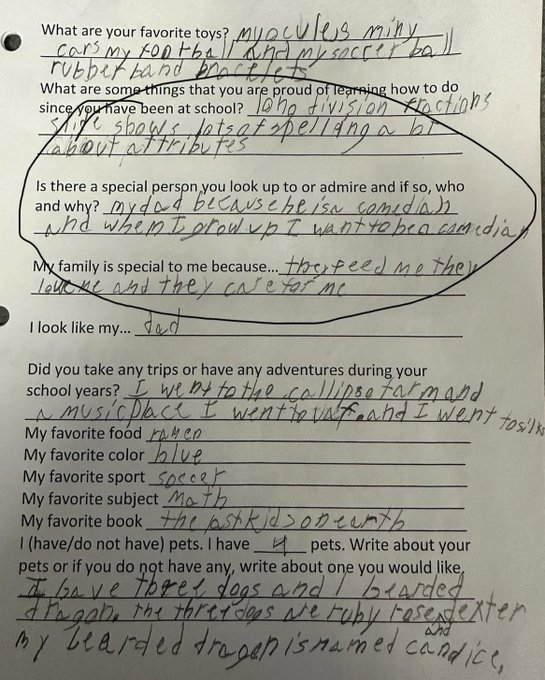 What are your favorite toys? my oculus miny
cars my football and my soccer ball
rubber band bracelets
What are some things that you are proud of learning how to do
since you have been at school? long division fractions
slife shows lots of spelling a bt
about attributes
Is there a special person you look up to or admire and if so, who
and why? my dad because he is a comedian
and when I grow up I want to be a comedian
My family is special to me because... they feed me they
love me and they care for me
I look like my... dad
Did you take any trips or have any adventures during your
school years? I went to the farm and
a music place I went to and I went to
My favorite food ramen
My favorite color blue
My favorite sport soccer
My favorite subject Math
My favorite book the last kids on earth
I (have/do not have) pets. I have 4 pets. Write about your
pets or if you do not have any, write about one you would like.
I have three dogs and 1 bearded
dragon. the three dogs are ruby rose dexter
and
my bearded dragon is named candice.